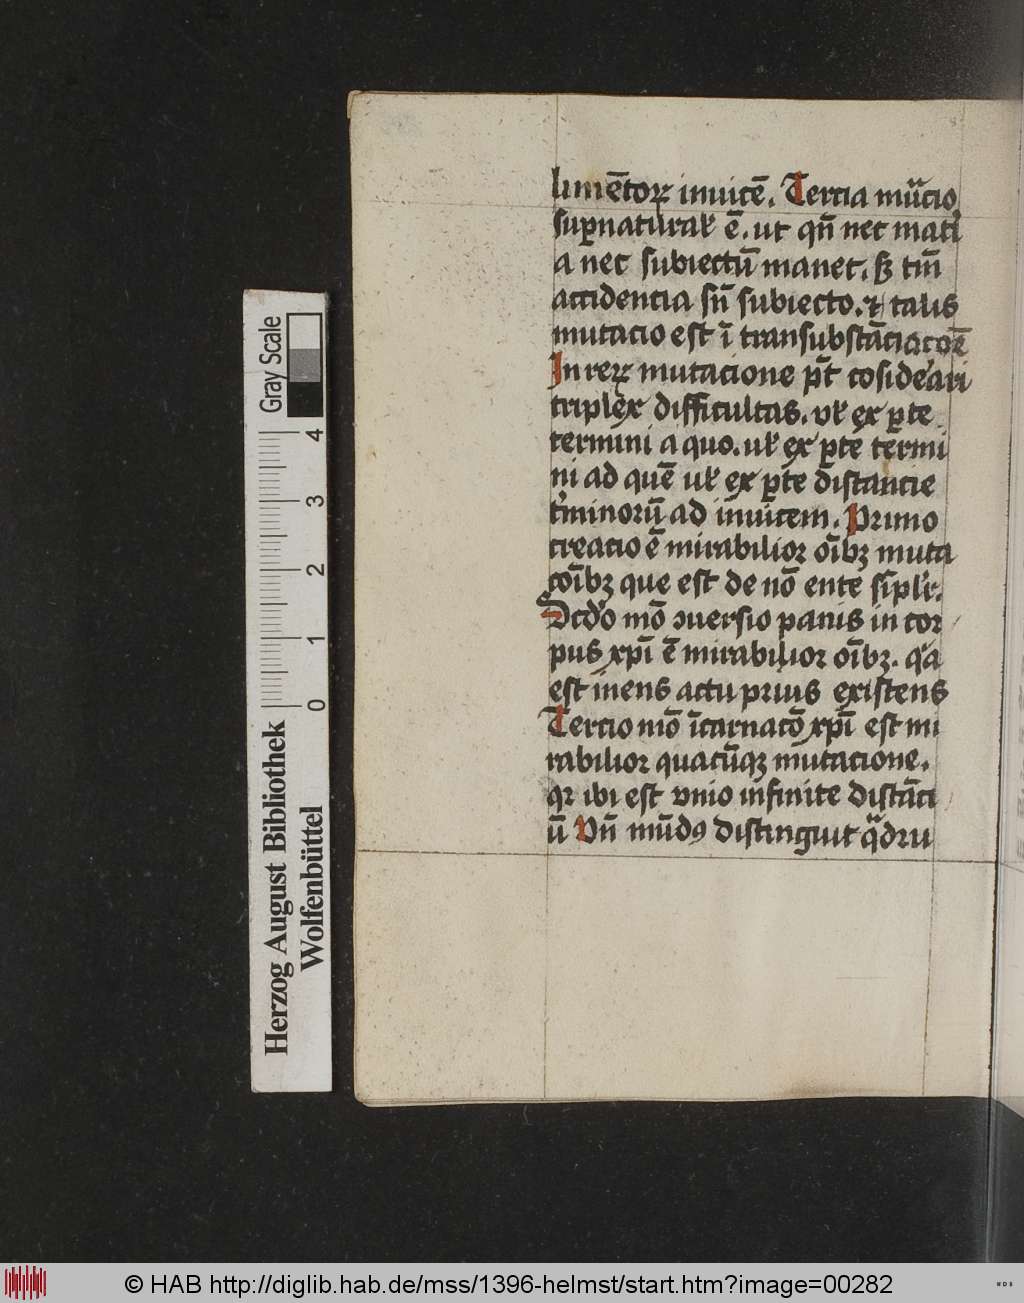 limētoꝝ inuicē. Tercia mutᷓcio
suꝑnaturał ē. ut qn̄ nec mat̓i
a nec subiectū manet. sꝫ tm̄
accidencia sn̄ subiecto. ⁊ talis
mutacio est ī transubstācĩacōe
In reꝝ mutacione pn̄t cōsiderari
triplex difficultas. vł ex ꝑte
termini a quo. uł ex ꝑte termi
ni ad quē uł ex ꝑte distancie
t̓minorū ad inuicem. Primo
creacio ē mirabilior oībꝫ muta
cōibꝫ que est de nō ente simpli
Scdo mō ꝯuersio panis in cor
pus xp̄i ē mirabilior oībꝫ. qᷓ
est in ens actu prius existens
Tercio mō īcarnacō xp̄i est mi
rabilior quacūqꝫ mutacione.
qꝛ ibi est vnio infinite distāci
ū Vn̄ mūdꝰ distinguit qᷓdru
Gray Scale
0 1 2 3 4
Herzog August Bibliothek
Wolfenbüttel
© HAB http://diglib.hab.de/mss/1396-helmst/start.htm?image=00282